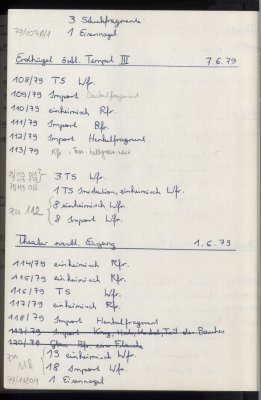 3 Schuhfragmente
79/107041 1 Eisennagel
Erdhügel östl. Tempel III 7.6.79
108/79 TS Wfr.
109/79 Import Deckelfragment
110/79 einheimisch Rfr.
111/79 Import Rfr.
112/79 Import Henkelfragment
113/79 Rfr., Ton
3 TS Wfr.
1 TS Imitation, einheimisch Wfr.
zu 112 8 einheimisch Wfr.
8 Import Wfr.
Theater nördl. Eingang 1.6.79
114/79 einheimisch Rfr.
115/79 einheimisch Rfr.
116/79 TS Wfr.
117/79 einheimisch Rfr.
118/79 Import Henkelfragment
119/79 Import Krug, Hals, Henkel, Teil des Bauches
120/79 Glas Rfr.
zu 118 13 einheimisch Wfr.
18 Import Wfr.
1 Eisennagel